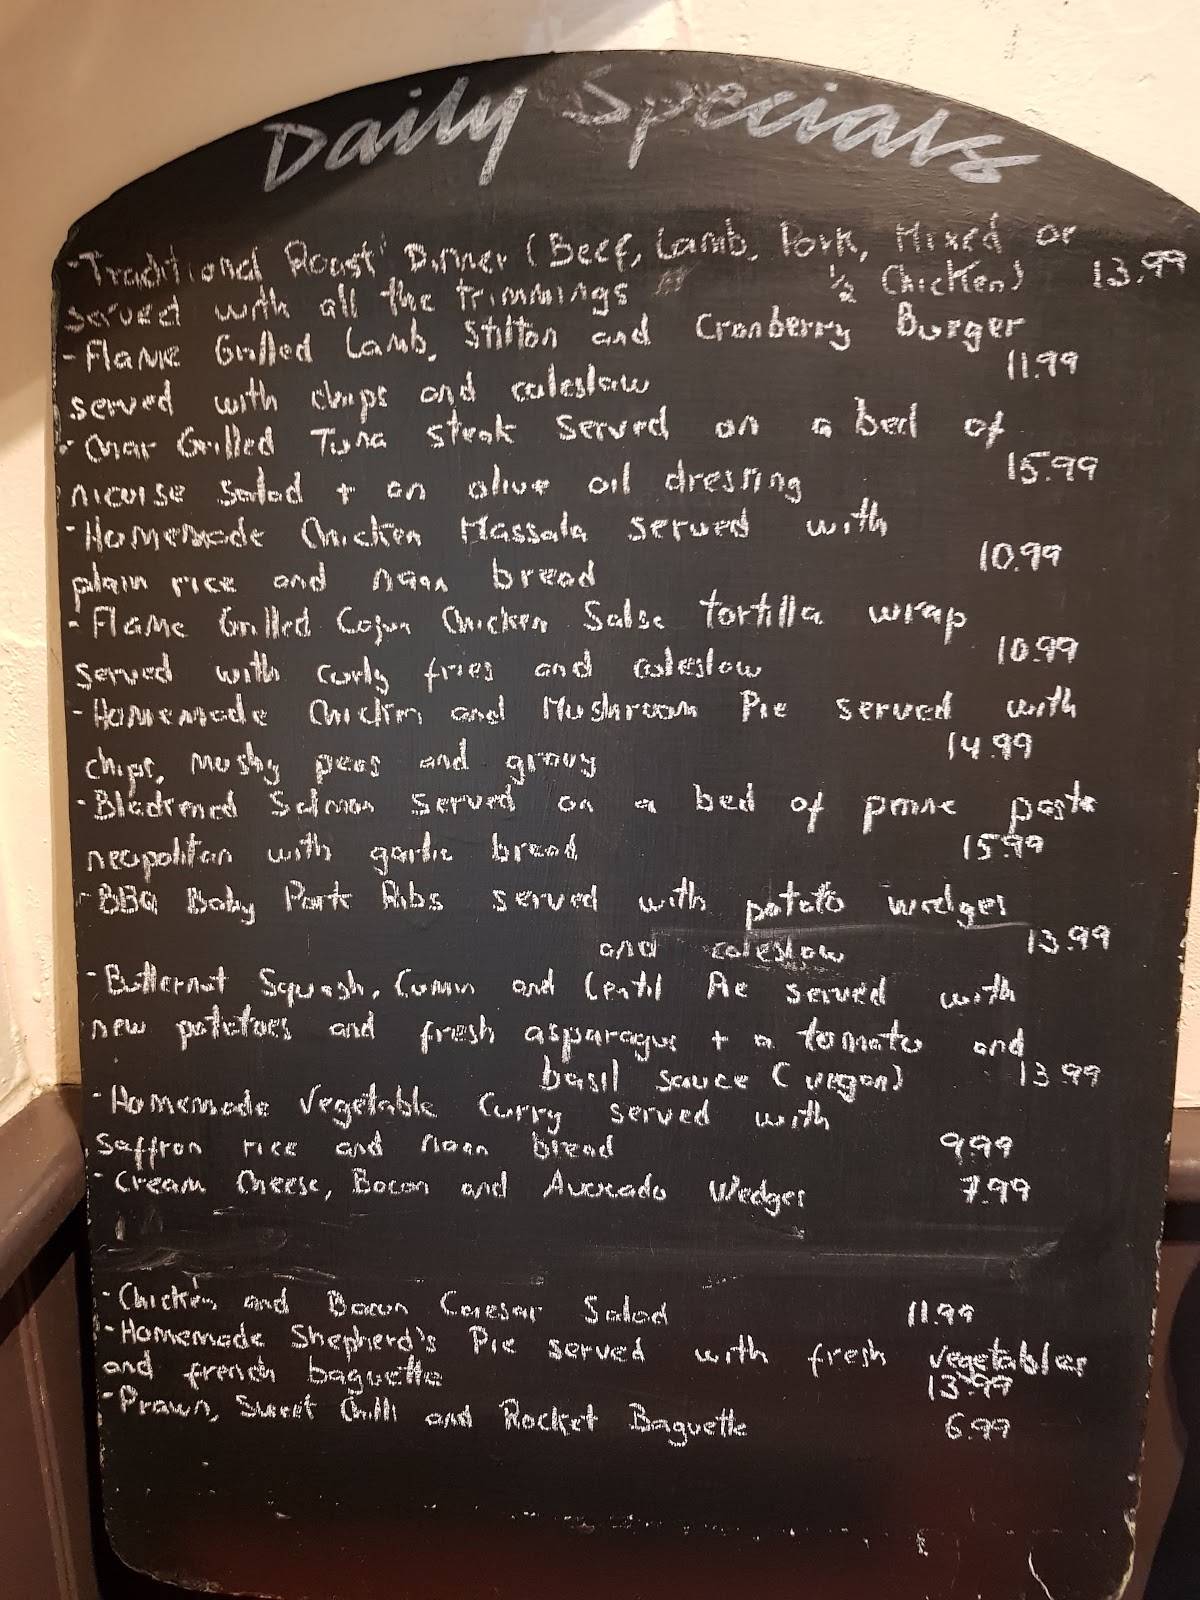 Daily Specials
- Traditional Roast Dinner (Beef, Lamb, Pork, Mixed or
served with all the trimmings ½ Chicken) 13.99
- Flame Grilled Lamb, Stilton and Cranberry Burger
served with chips and coleslaw 11.99
- Char Grilled Tuna Steak served on a bed of
nicoise salad + an olive oil dressing 15.99
- Homemade Chicken Massala served with
plain rice and naan bread 10.99
- Flame Grilled Cajun Chicken Salsa tortilla wrap
served with curly fries and coleslow 10.99
- Homemade Chicken and Mushroom Pie served with
chips, mushy peas and gravy 14.99
- Blackened Salmon served on a bed of penne pasta
neopolitan with garlic bread 15.99
- BBQ Baby Pork Ribs served with potato wedges
and coleslow 13.99
- Butternut Squash, Cumin and Lentil Pie served with
new potatoes and fresh asparagus + a tomato and
basil sauce (vegan) 13.99
- Homemade Vegetable Curry served with
saffron rice and naan bread 9.99
- Cream Cheese, Bacon and Avocado Wedges 7.99
- Chicken and Bacon Caesar Salad 11.99
- Homemade Shepherd's Pie served with fresh vegetables
and french baguette 13.99
- Prawn, Sweet Chilli and Rocket Baguette 6.99